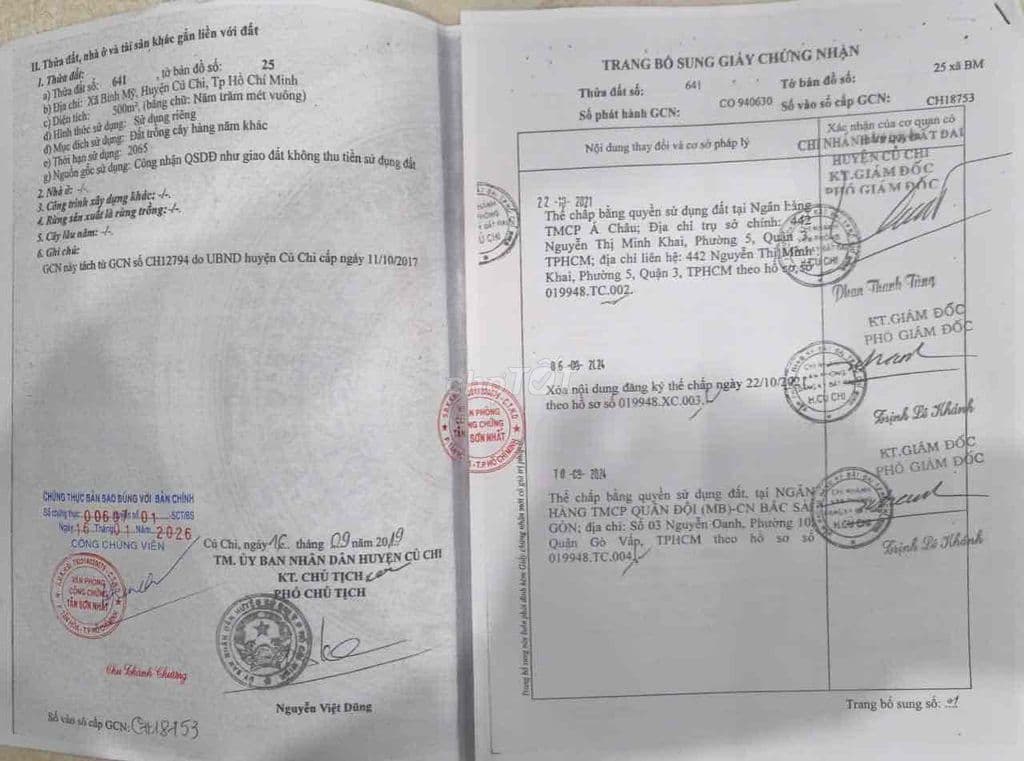 II. Thửa đất, nhà ở và tài sản khác gắn liền với đất
1. Thửa đất:
a) Thửa đất số: 641 , tờ bản đồ số: 25
b) Địa chỉ: Xã Bình Mỹ, Huyện Củ Chi, Tp Hồ Chí Minh
c) Diện tích: 500m², (bằng chữ: Năm trăm mét vuông)
d) Hình thức sử dụng: Sử dụng riêng
đ) Mục đích sử dụng: Đất trồng cây hàng năm khác
e) Thời hạn sử dụng: 2065
g) Nguồn gốc sử dụng: Công nhận QSDĐ như giao đất không thu tiền sử dụng đất
2. Nhà ở: -/-.
3. Công trình xây dựng khác: -/-.
4. Rừng sản xuất là rừng trồng: -/-.
5. Cây lâu năm: -/-.
6. Ghi chú:
GCN này tách từ GCN số CH12794 do UBND huyện Củ Chi cấp ngày 11/10/2017
CHỨNG THỰC BẢN SAO ĐÚNG VỚI BẢN CHÍNH
Số chứng thực: 00607 quyển số: 01 -SCT/BS
Ngày 16 Tháng 01 Năm 2026
CÔNG CHỨNG VIÊN
VĂN PHÒNG
CÔNG CHỨNG
TÂN SƠN NHẤT
Chu Thành Chương
Củ Chi, ngày 16 tháng 09 năm 2019
TM. ỦY BAN NHÂN DÂN HUYỆN CỦ CHI
KT. CHỦ TỊCH
PHÓ CHỦ TỊCH
Nguyễn Việt Dũng
Số vào sổ cấp GCN: CH18753
TRANG BỔ SUNG GIẤY CHỨNG NHẬN
Thửa đất số: 641 Tờ bản đồ số: 25 xã BM
Số phát hành GCN: CO 940630 Số vào sổ cấp GCN: CH18753
Nội dung thay đổi và cơ sở pháp lý
Xác nhận của cơ quan có
CHI NHÁNH ĐẤT ĐAI
HUYỆN CỦ CHI
KT.GIÁM ĐỐC
PHÓ GIÁM ĐỐC
22 -10- 2021
Thế chấp bằng quyền sử dụng đất tại Ngân hàng
TMCP Á Châu; Địa chỉ trụ sở chính: 442
Nguyễn Thị Minh Khai, Phường 5, Quận 3,
TPHCM; địa chỉ liên hệ: 442 Nguyễn Thị Minh
Khai, Phường 5, Quận 3, TPHCM theo hồ sơ số
019948.TC.002
Phan Thanh Tùng
KT.GIÁM ĐỐC
PHÓ GIÁM ĐỐC
06 -09- 2024
Xóa nội dung đăng ký thế chấp ngày 22/10/2021
theo hồ sơ số 019948.XC.003
H.CỦ CHI
Trịnh Lê Khánh
KT.GIÁM ĐỐC
PHÓ GIÁM ĐỐC
10 -09- 2024
Thế chấp bằng quyền sử dụng đất, tại NGÂN
HÀNG TMCP QUÂN ĐỘI (MB)-CN BẮC SÀI
GÒN; địa chỉ: Số 03 Nguyễn Oanh, Phường 10,
Quận Gò Vấp, TPHCM theo hồ sơ số
019948.TC.004
H.CỦ CHI
Trịnh Lê Khánh
VĂN PHÒNG
CÔNG CHỨNG
TÂN SƠN NHẤT
Trang bổ sung số: 01